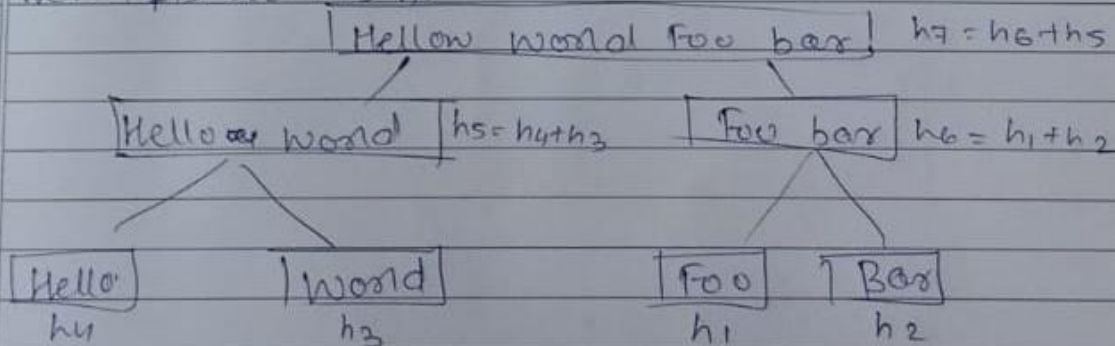 Hellow world Foo bar h7 = h6+h5
Hello world h5 = h4+h3 Foo bar h6 = h1+h2
Hello World Foo Bar
h4 h3 h1 h2